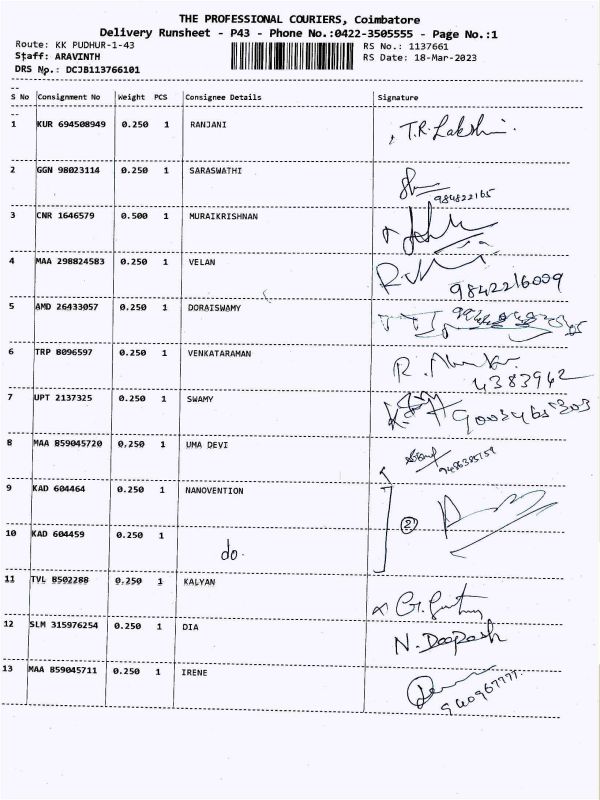 THE PROFESSIONAL COURIERS, Coimbatore
Delivery Runsheet - P43 - Phone No.:0422-3505555 - Page No.:1
Route: KK PUDHUR-1-43 RS No.: 1137661
Staff: ARAVINTH RS Date: 18-Mar-2023
DRS No.: DCJB113766101
--
S No Consignment No Weight PCS Consignee Details Signature
--
1 KUR 694508949 0.250 1 RANJANI T.R.Lakshmi.
2 GGN 98023114 0.250 1 SARASWATHI
984822165
3 CNR 1646579 0.500 1 MURAIKRISHNAN
4 MAA 298824583 0.250 1 VELAN
9842216009
5 AMD 26433057 0.250 1 DORAISWAMY
6 TRP 8096597 0.250 1 VENKATARAMAN R.
4383942
7 UPT 2137325 0.250 1 SWAMY
8 MAA 859045720 0.250 1 UMA DEVI
9 KAD 604464 0.250 1 NANOVENTION
2
10 KAD 604459 0.250 1 do.
11 TVL 8502288 0.250 1 KALYAN
12 SLM 315976254 0.250 1 DIA N. Deepash
13 MAA 859045711 0.250 1 IRENE